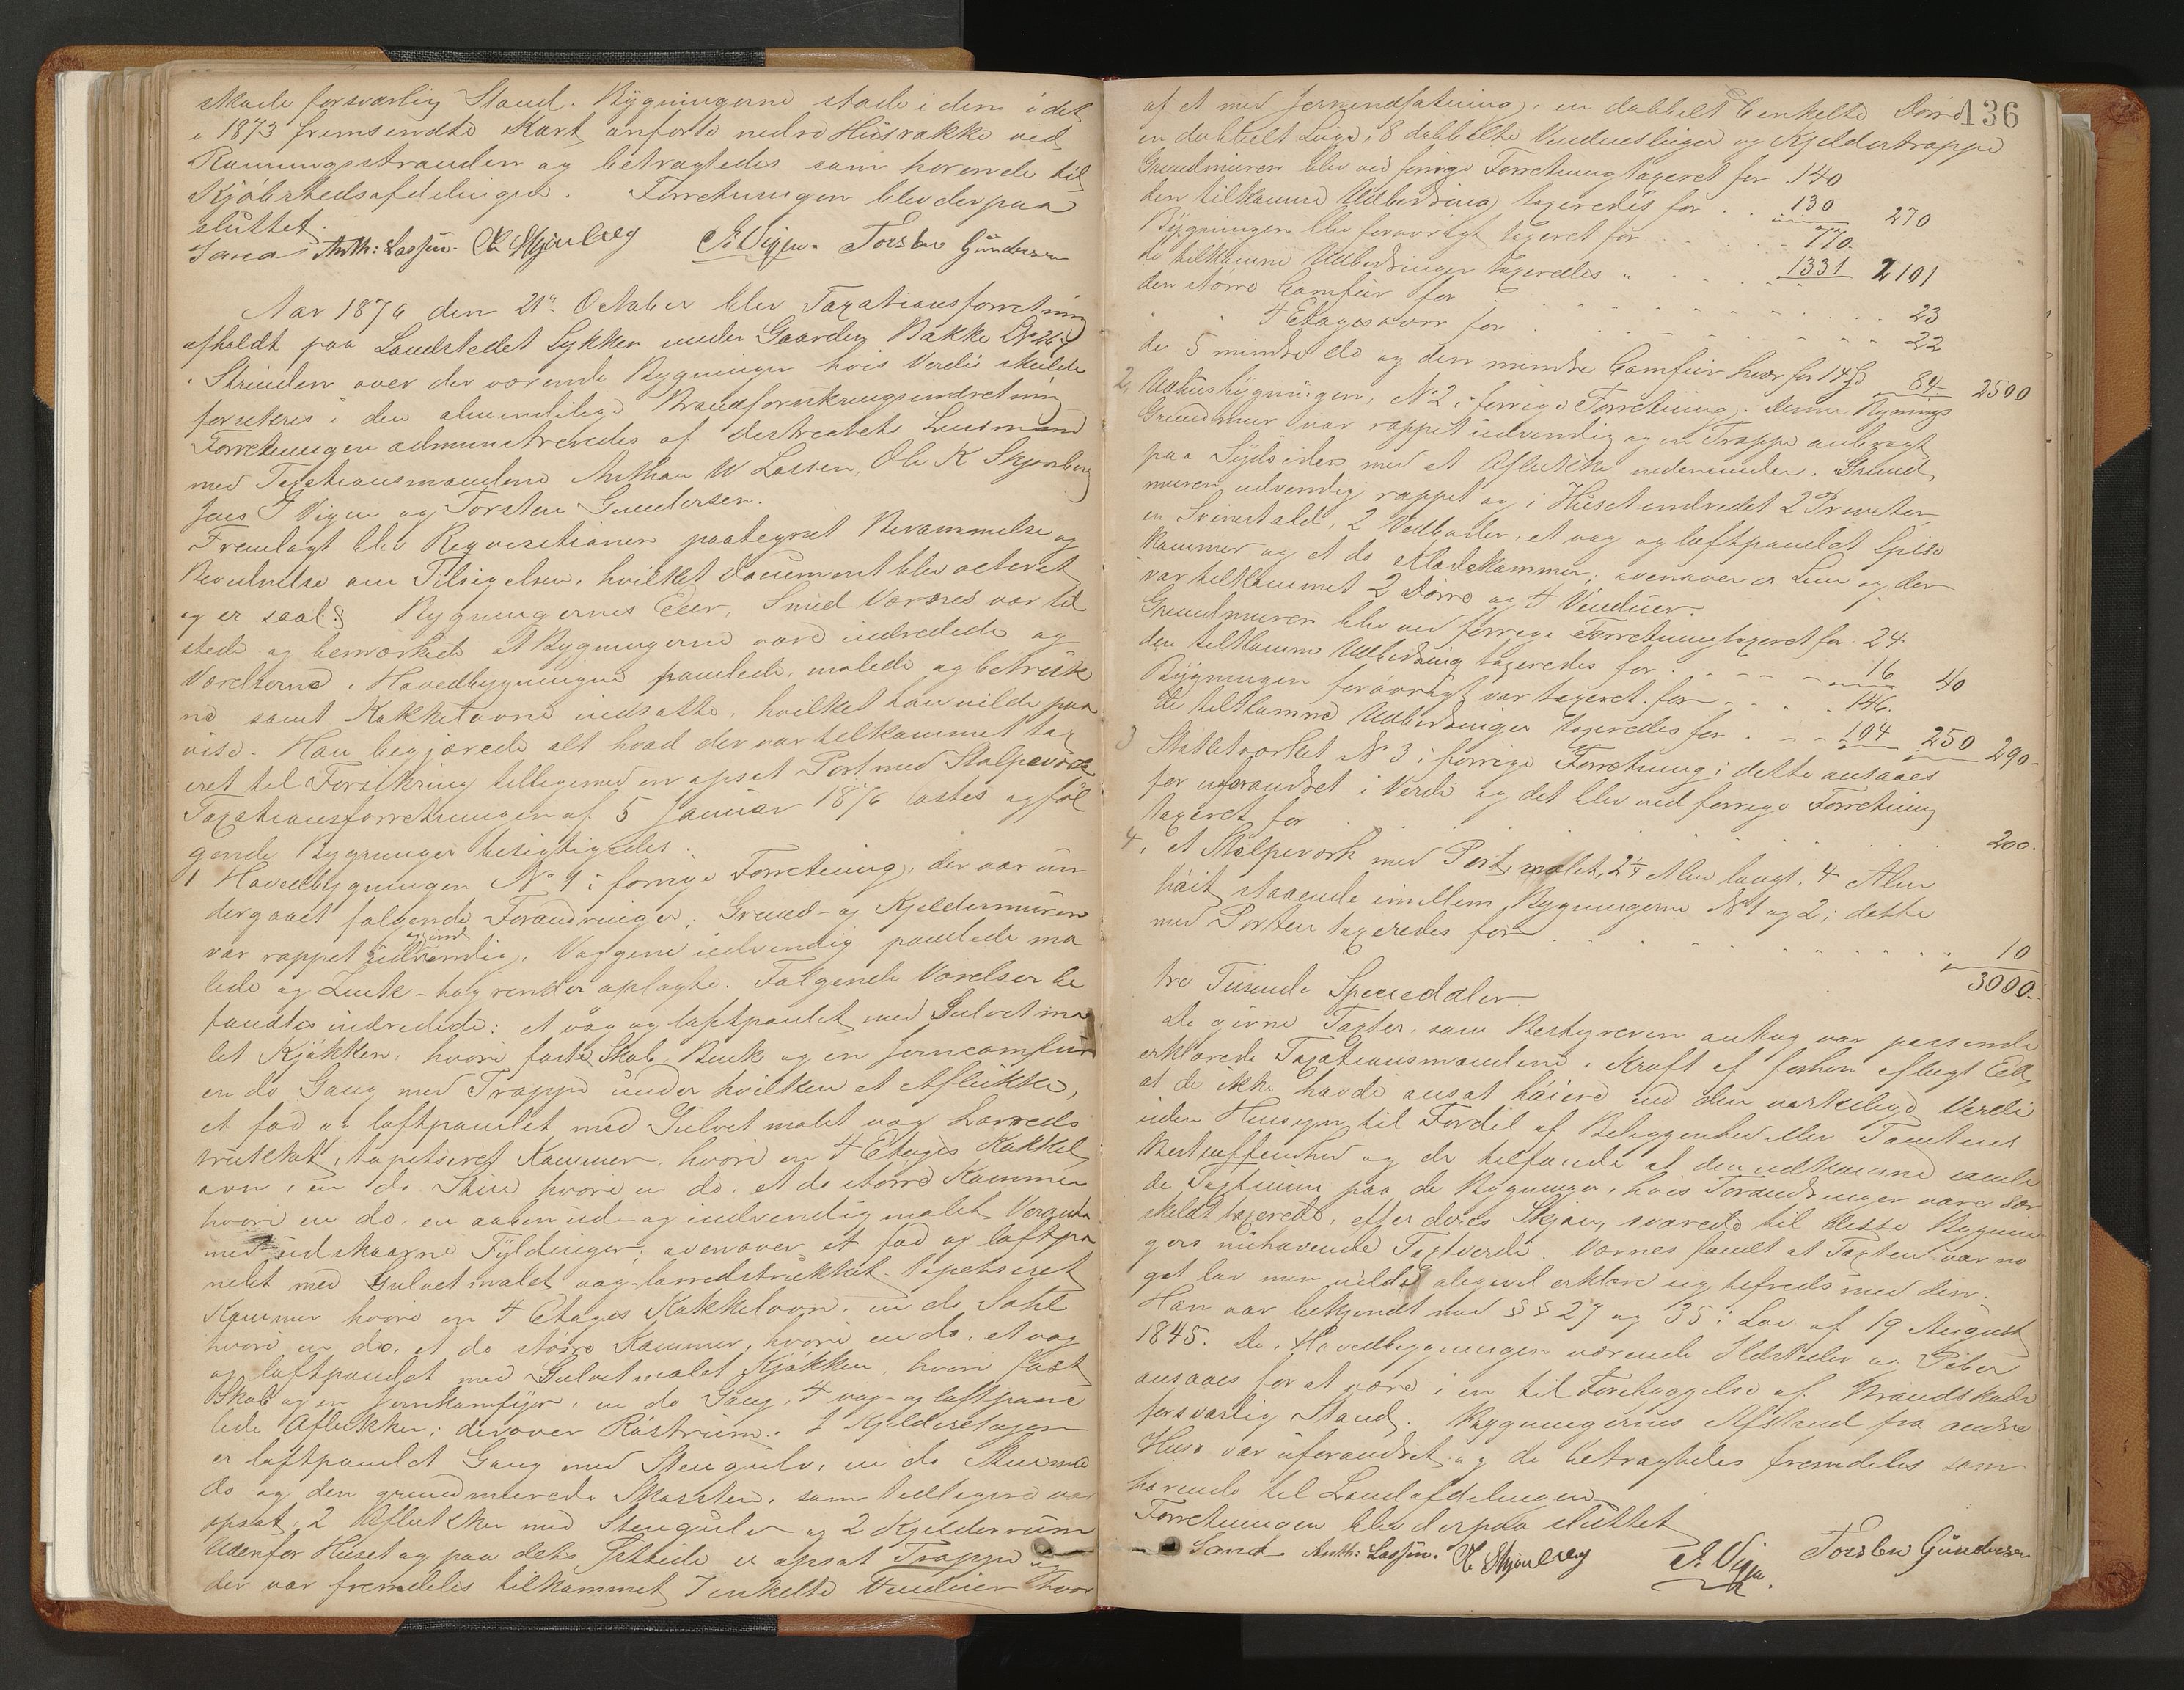 skade forsvarlig Stand. Bygningerne stode i den i det
i 1873 fremsendte Kart anførte nedre Husrække ved
Raningsstranden og betragtedes som hørende til
Kjøbstedsafdelingen. Forretningen blev derpaa
sluttet.
Sand Anth: Lassen. O K Skjønberg J. Vigen. Torsten Gundersen
Aar 1876 den 21de October blev Taxationsforretning
afholdt paa Landstedet Lykken under Gaarden Bakke No 267
i Strinden over der værende Bygninger hvis Værdi skulde
forsikres i den almindelige Brandforsikringsindretning
Forretningen administreredes af Distrectets Lensmand
med Taxationsmændene Anthon W Lassen, Ole K Skjønberg
Jens J Vigen og Torsten Gundersen.
Fremlagt blev Reqvisitionen paategnet Berammelse og
Bevidnelse om Tilsigelsen, hvilket Document blev acteret
og er saal: § Bygningernes Eier, Smed Værnes var til
stede og bemærkede at Bygningerne vare indredede og
Værelserne i Hovedbygningen panlede, malede og betruk
ne samt Kakkelovne indsatte, hvilket han vilde paa
vise. Han begjærede alt hvad der var tilkommet tax
eret til Forsikring tilligemed en opsat Port med Stolpeværk
Taxationsforretningen af 5 Januar 1876 læstes og føl
gende Bygninger besigtigedes:
1 Hovedbygningen No 1 i forrige Forretning, der var un
dergaaet følgende Forandringer: Grund- og Kjeldermuren
og ind
var rappet udvendig. Væggene indvendig panlede ma
lede og Zink-tagrender oplagte. Følgende Værelser be
fandtes indredede: et væg og loftpanlet med Gulvet ma
let Kjøkken, hvori faste Skab, Bænk og en Jerncomfur
en do Gang med Trappe under hvilken et Aflukke,
et fod og loftpanlet med Gulvet malet væg Lærreds
trukket, tapetseret Kammer, hvori en 4 Etages Kakkel
ovn, en do Stue hvori en do, et do større Kammer
hvori en do, en aaben ud- og indvendig malet Veranda
med udskaarne Fyldinger; ovenover et fod og loftpa
nelet med Gulvet malet væg-lærredstrukket tapetseret
Kammer hvori en 4 Etages Kakkelovn, en do Sahl
hvori en do, et do større Kammer, hvori en do, et væg
og loftpanelet med Gulvet malet Kjøkken, hvori fast
Skab og en Jernkomfyr, en do Gang, 4 væg- og loftpane
lede Aflukker; derover Røstrum. I Kjelderetagen
er loftpanelet Gang med Stengulv, en do Stue med
do og den grundmurede Massten, som tidligere var
opsat, 2 Aflukker med Stengulv og 2 Kjelderrum
Udenfor Huset og paa dets Østside er opsat Trappe
der var fremdeles tilkommet 7 enkelte Vinduer hvor
136
af et med Jernindfatning, en dobbelt 6 enkelte Dørre
en dobbelt Luge, 8 dobbelte Vinduesluger og Kjeldertrappe
Grundmuren blev ved forrige Forretning taxeret for 140
den tilkomne Udbedring taxeredes for . . 130 270
Bygningen blev forøvrigt taxeret for . . 770.
de tilkomne Udbedringer taxeredes " . . 1331 2101
den større Comfur for . . . 23
" " 4 Etagesovn for . . . 22
de 5 mindre do og den mindre Comfur hver for 14 Sp 84 2500
2, Udhusbygningen, No 2 i forrige Forretning. Denne Bygnings
Grundmur var rappet udvendig og en Trappe anbragt
paa Sydsiden med et Aflukke nedenunder. Grund
muren udvendig rappet og i Huset indredet 2 Priveter,
en Svinestald, 2 Vedboder, et væg og loftpanelet Spise
kammer og et do Madkammer; ovenover er Lem og der
var tilkommet 2 Dørre og 4 Vinduer.
Grundmuren blev ved forrige Forretning taxeret for 24
den tilkomne Udbedring taxeredes for . . 16 40
Bygningen forøvrigt var taxeret for . . 146.
de tilkomne Udbedringer taxeredes for . . 104 250 290-
3 Stakitværket No 3 i forrige Forretning; dette ansaaes
for uforandret i Værdi og det blev ved forrige Forretning
taxeret for . . . 200.
4, et Stolpeværk med Port, malet, 2¼ Alen langt, 4 Alen
høit staaende imellem Bygningerne No 1 og 2; dette
med Porten taxeredes for . . . 10
3000.
tre Tusende Speciedaler
De givne Taxter, som Bestyreren antog var passende
erklærede Taxationsmændene i Kraft af forhen aflagt Eed
at de ikke havde ansat høiere end den virkelige Værdi
uden Hensyn til Fordel af Beliggenhed eller Tomtens
Beskaffenhed og de tilføiede at den udkomne samle
de Taxtsum paa de Bygninger, hvis Forandringer vare sær
skildt taxerede, efter deres Skjøn, svarede til disse Bygnin
gers nuhavende Taxtværdi. Værnes fandt at Taxten var no
get lav men vilde alligevel erklære sig tilfreds med den.
Han var bekjendt med §§ 27 og 35 i Lov af 19 August
1845. De i Hovedbygningen værende Ildsteder og Piber
ansaaes for at være i en til Forebyggelse af Brandskade
forsvarlig Stand. Bygningernes Afstand fra andre
Huse var uforandret og de betragtedes fremdeles som
hørende til Landafdelingen.
Forretningen blev derpaa sluttet
Sand Anth: Lassen. O K Skjønberg J. Vigen. Torsten Gundersen